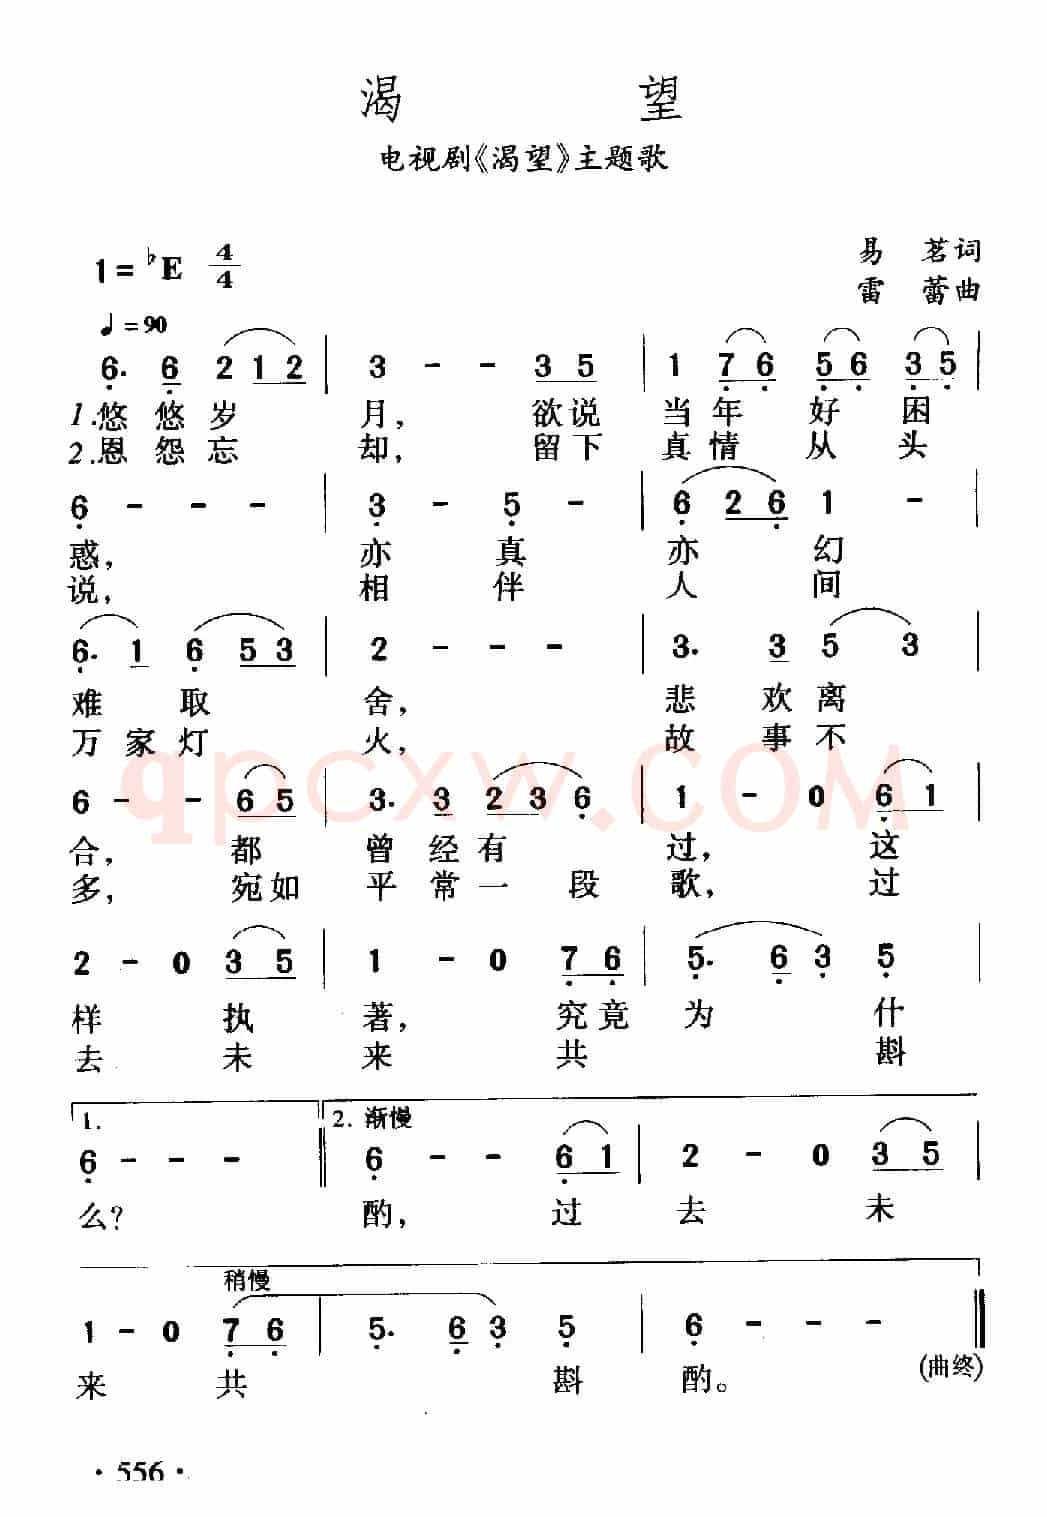 渴 望
电视剧《渴望》主题歌
1=♭E 4/4
易 茗词
雷 蕾曲
♩=90
6. 6 2 1 2 | 3 - - 3 5 | 1 7 6 5 6 3 5 |
1.悠 悠 岁 月, 欲说 当 年 好 困
2.恩 怨 忘 却, 留下 真 情 从 头
6 - - - | 3 - 5 - | 6 2 6 1 - |
惑, 亦 真 亦 幻
说, 相 伴 人 间
6. 1 6 5 3 | 2 - - - | 3. 3 5 3 |
难 取 舍, 悲 欢 离
万 家 灯 火, 故 事 不
6 - - 6 5 | 3. 3 2 3 6 | 1 - 0 6 1 |
合, 都 曾 经 有 过, 这
多, 宛如 平 常 一 段 歌, 过
qpcxw.COM
2 - 0 3 5 | 1 - 0 7 6 | 5. 6 3 5 |
样 执 著, 究竟 为 什
去 未 来 共 斟
1. 2. 渐慢
6 - - - || 6 - - 6 1 | 2 - 0 3 5 |
么? 酌, 过 去 未
稍慢
1 - 0 7 6 | 5. 6 3 5 | 6 - - - ||
(曲终)
来 共 斟 酌。
·556·